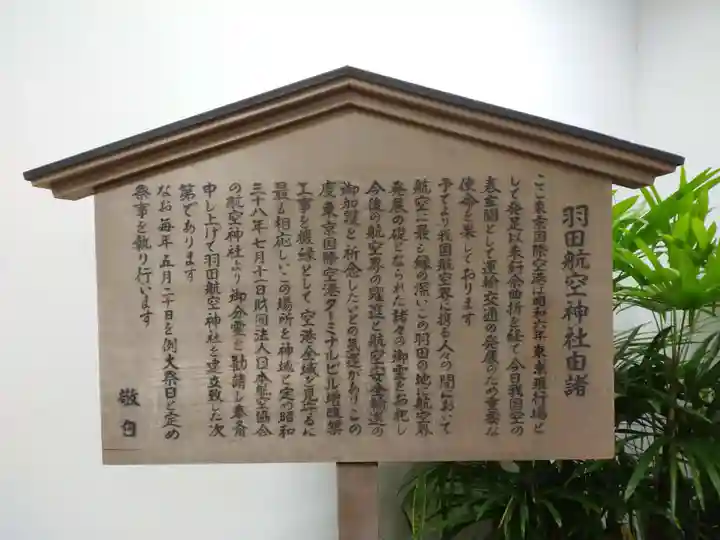 羽田航空神社由諸
ここ東京国際空港は昭和六年東京飛行場と
して発足以来紆余曲折を経て今日我国空の
表玄関として運輸交通の発展のため重要な
使命を果しております
予てより我国航空界に携る人々の間において
航空に最も縁の深いこの羽田の地に航空界
発展の礎となられた諸々の御霊をお祀し
今後の航空界の躍進と航空安全輸送の
御加護を祈念したいとの気運がありこの
度東京国際空港ターミナルビル増改築
工事を機縁として空港全域を見守るに
最も相応しいこの場所を神域と定め昭和
三十八年七月十二日財団法人日本航空協会
の航空神社より御分霊を勧請し奉斎
申し上げて羽田航空神社を建立致した次
第であります
なお毎年五月二十日を例大祭日と定め
祭事を執り行います
敬白